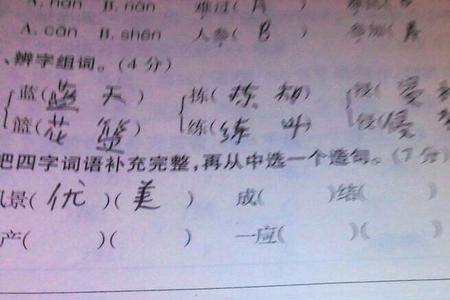 A. nán B. nàn 难过( A )
A. cān B. shēn 人参( B ) 参加( A
、辨字组词。(4 分)
蓝(蓝 天) 拣(拣
篮(花 篮) 练(练
把四字词语补充完整,再从中选一个造句。(7 分)
风景(优)(美) 成( )结( )
产( )( ) 一应( )( )